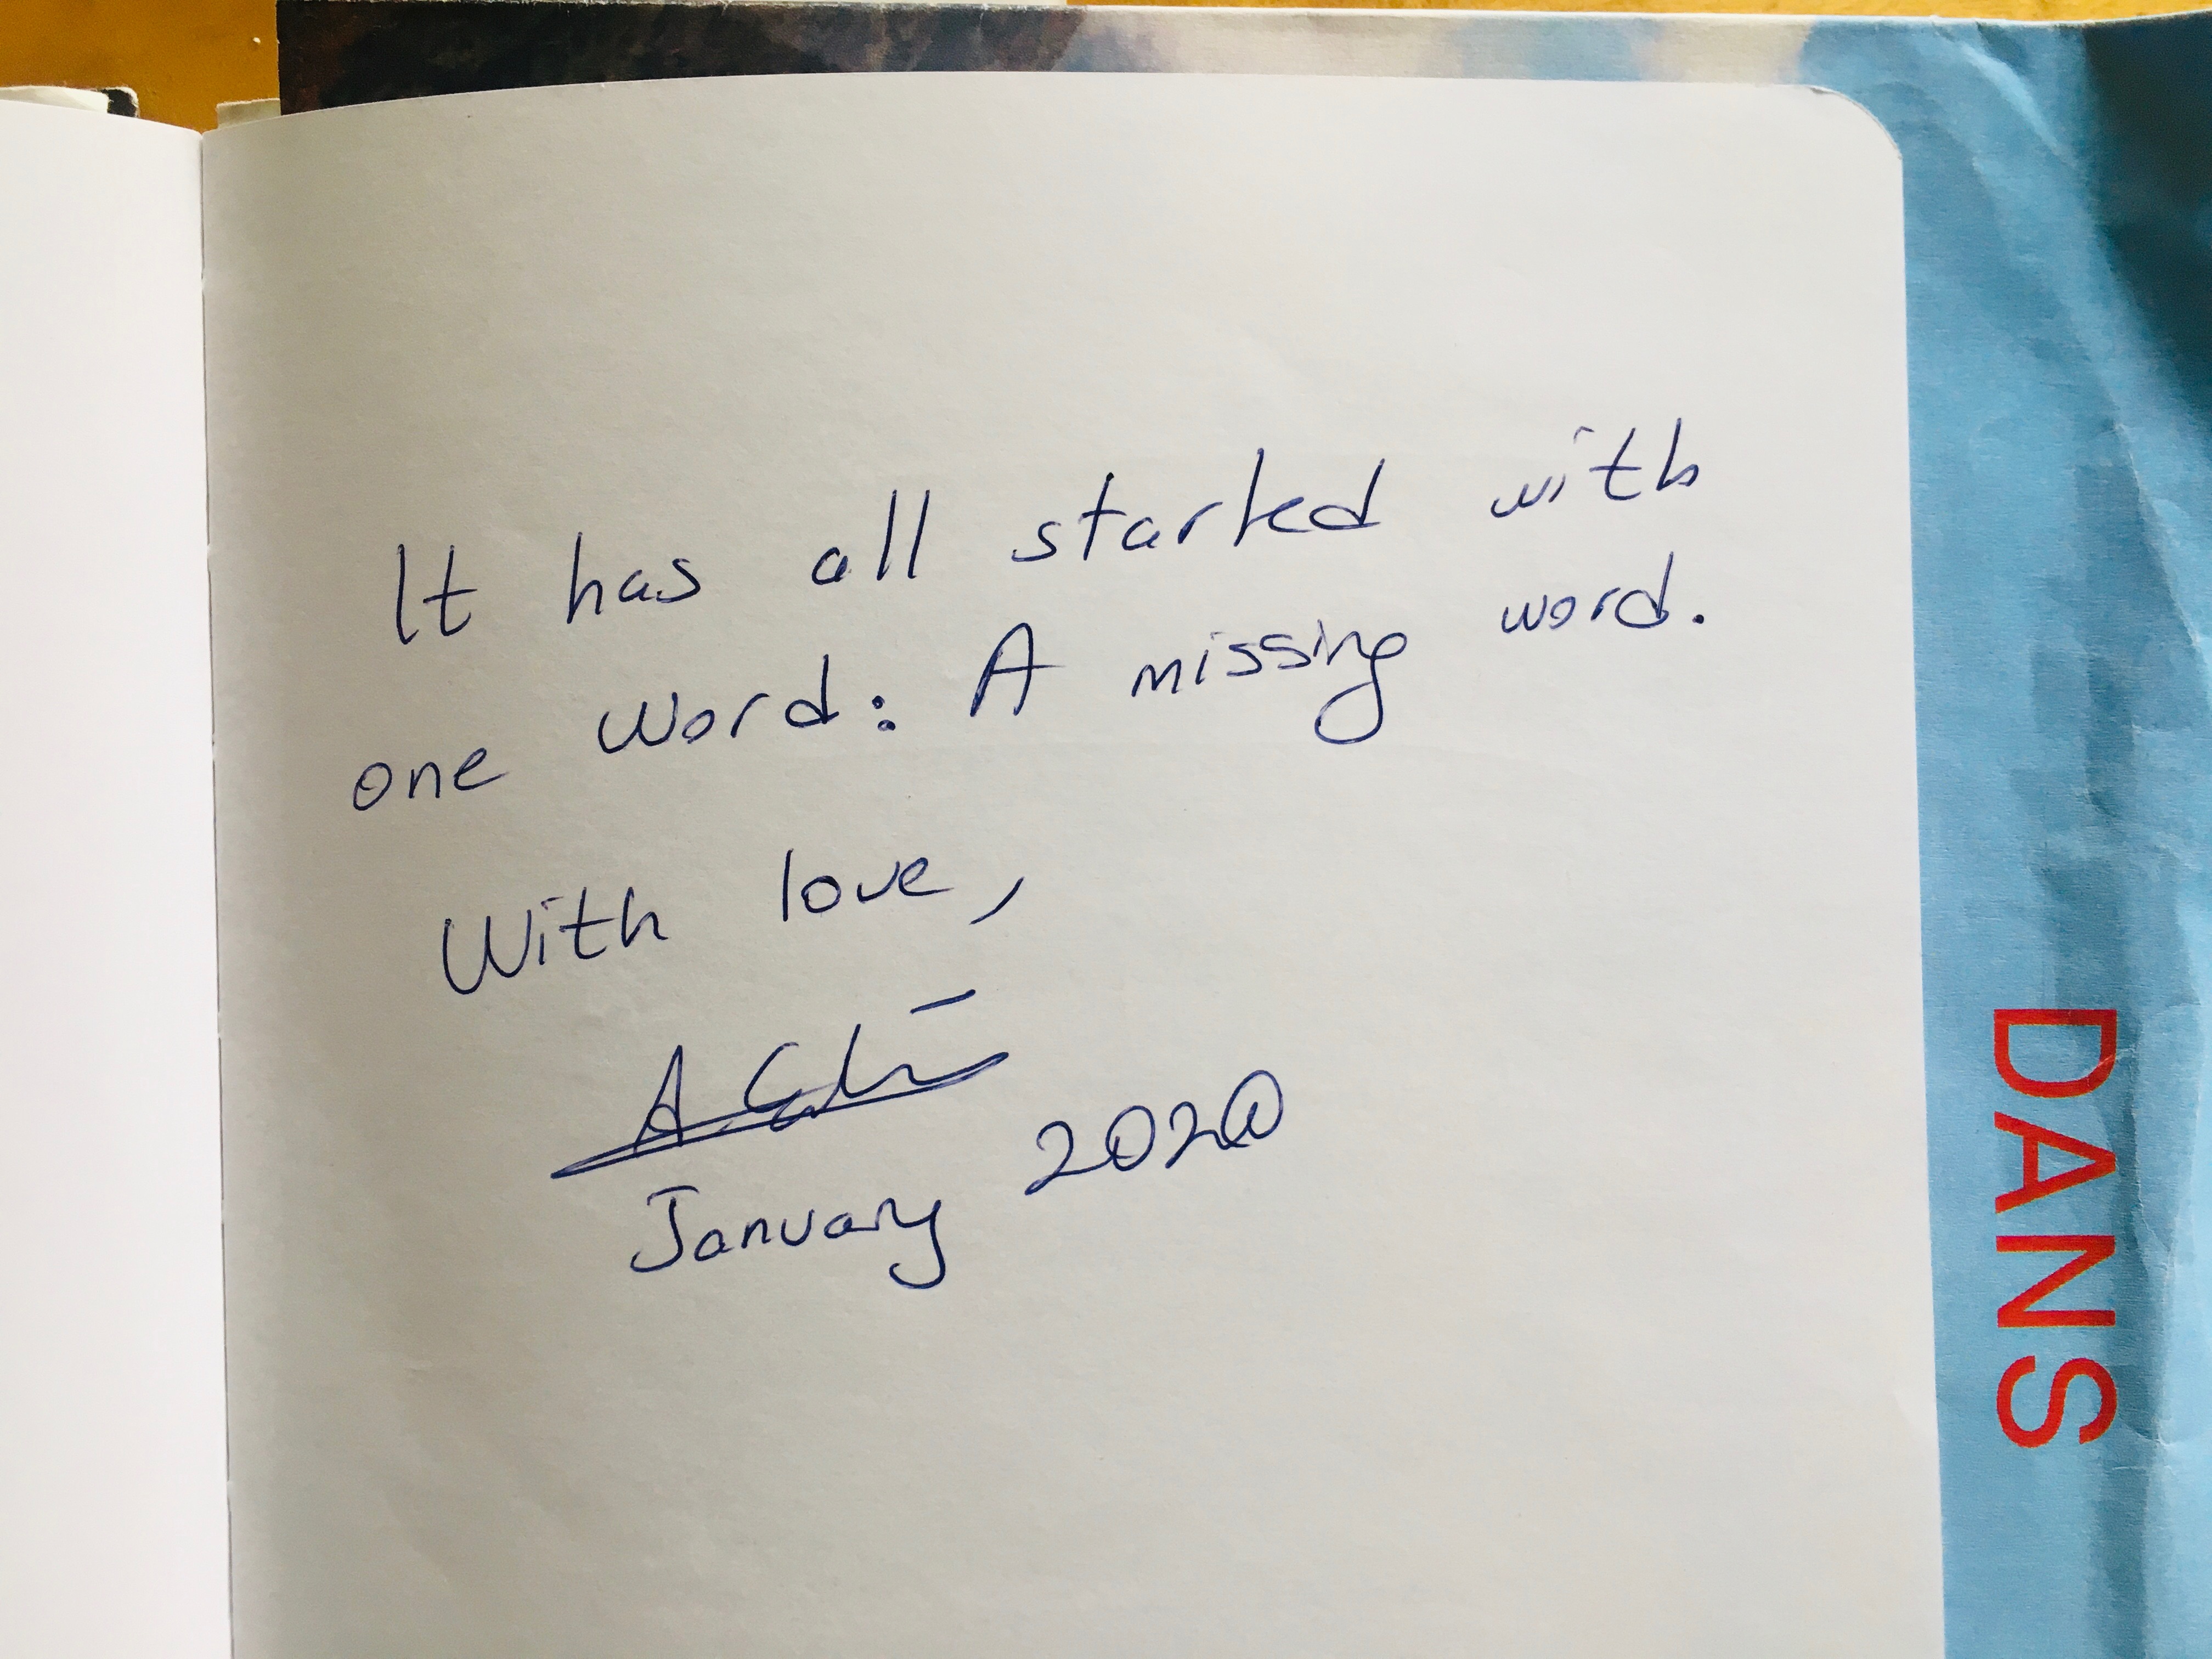 It has all started with
one word: A missing word.
With love,
January 2020
DANS